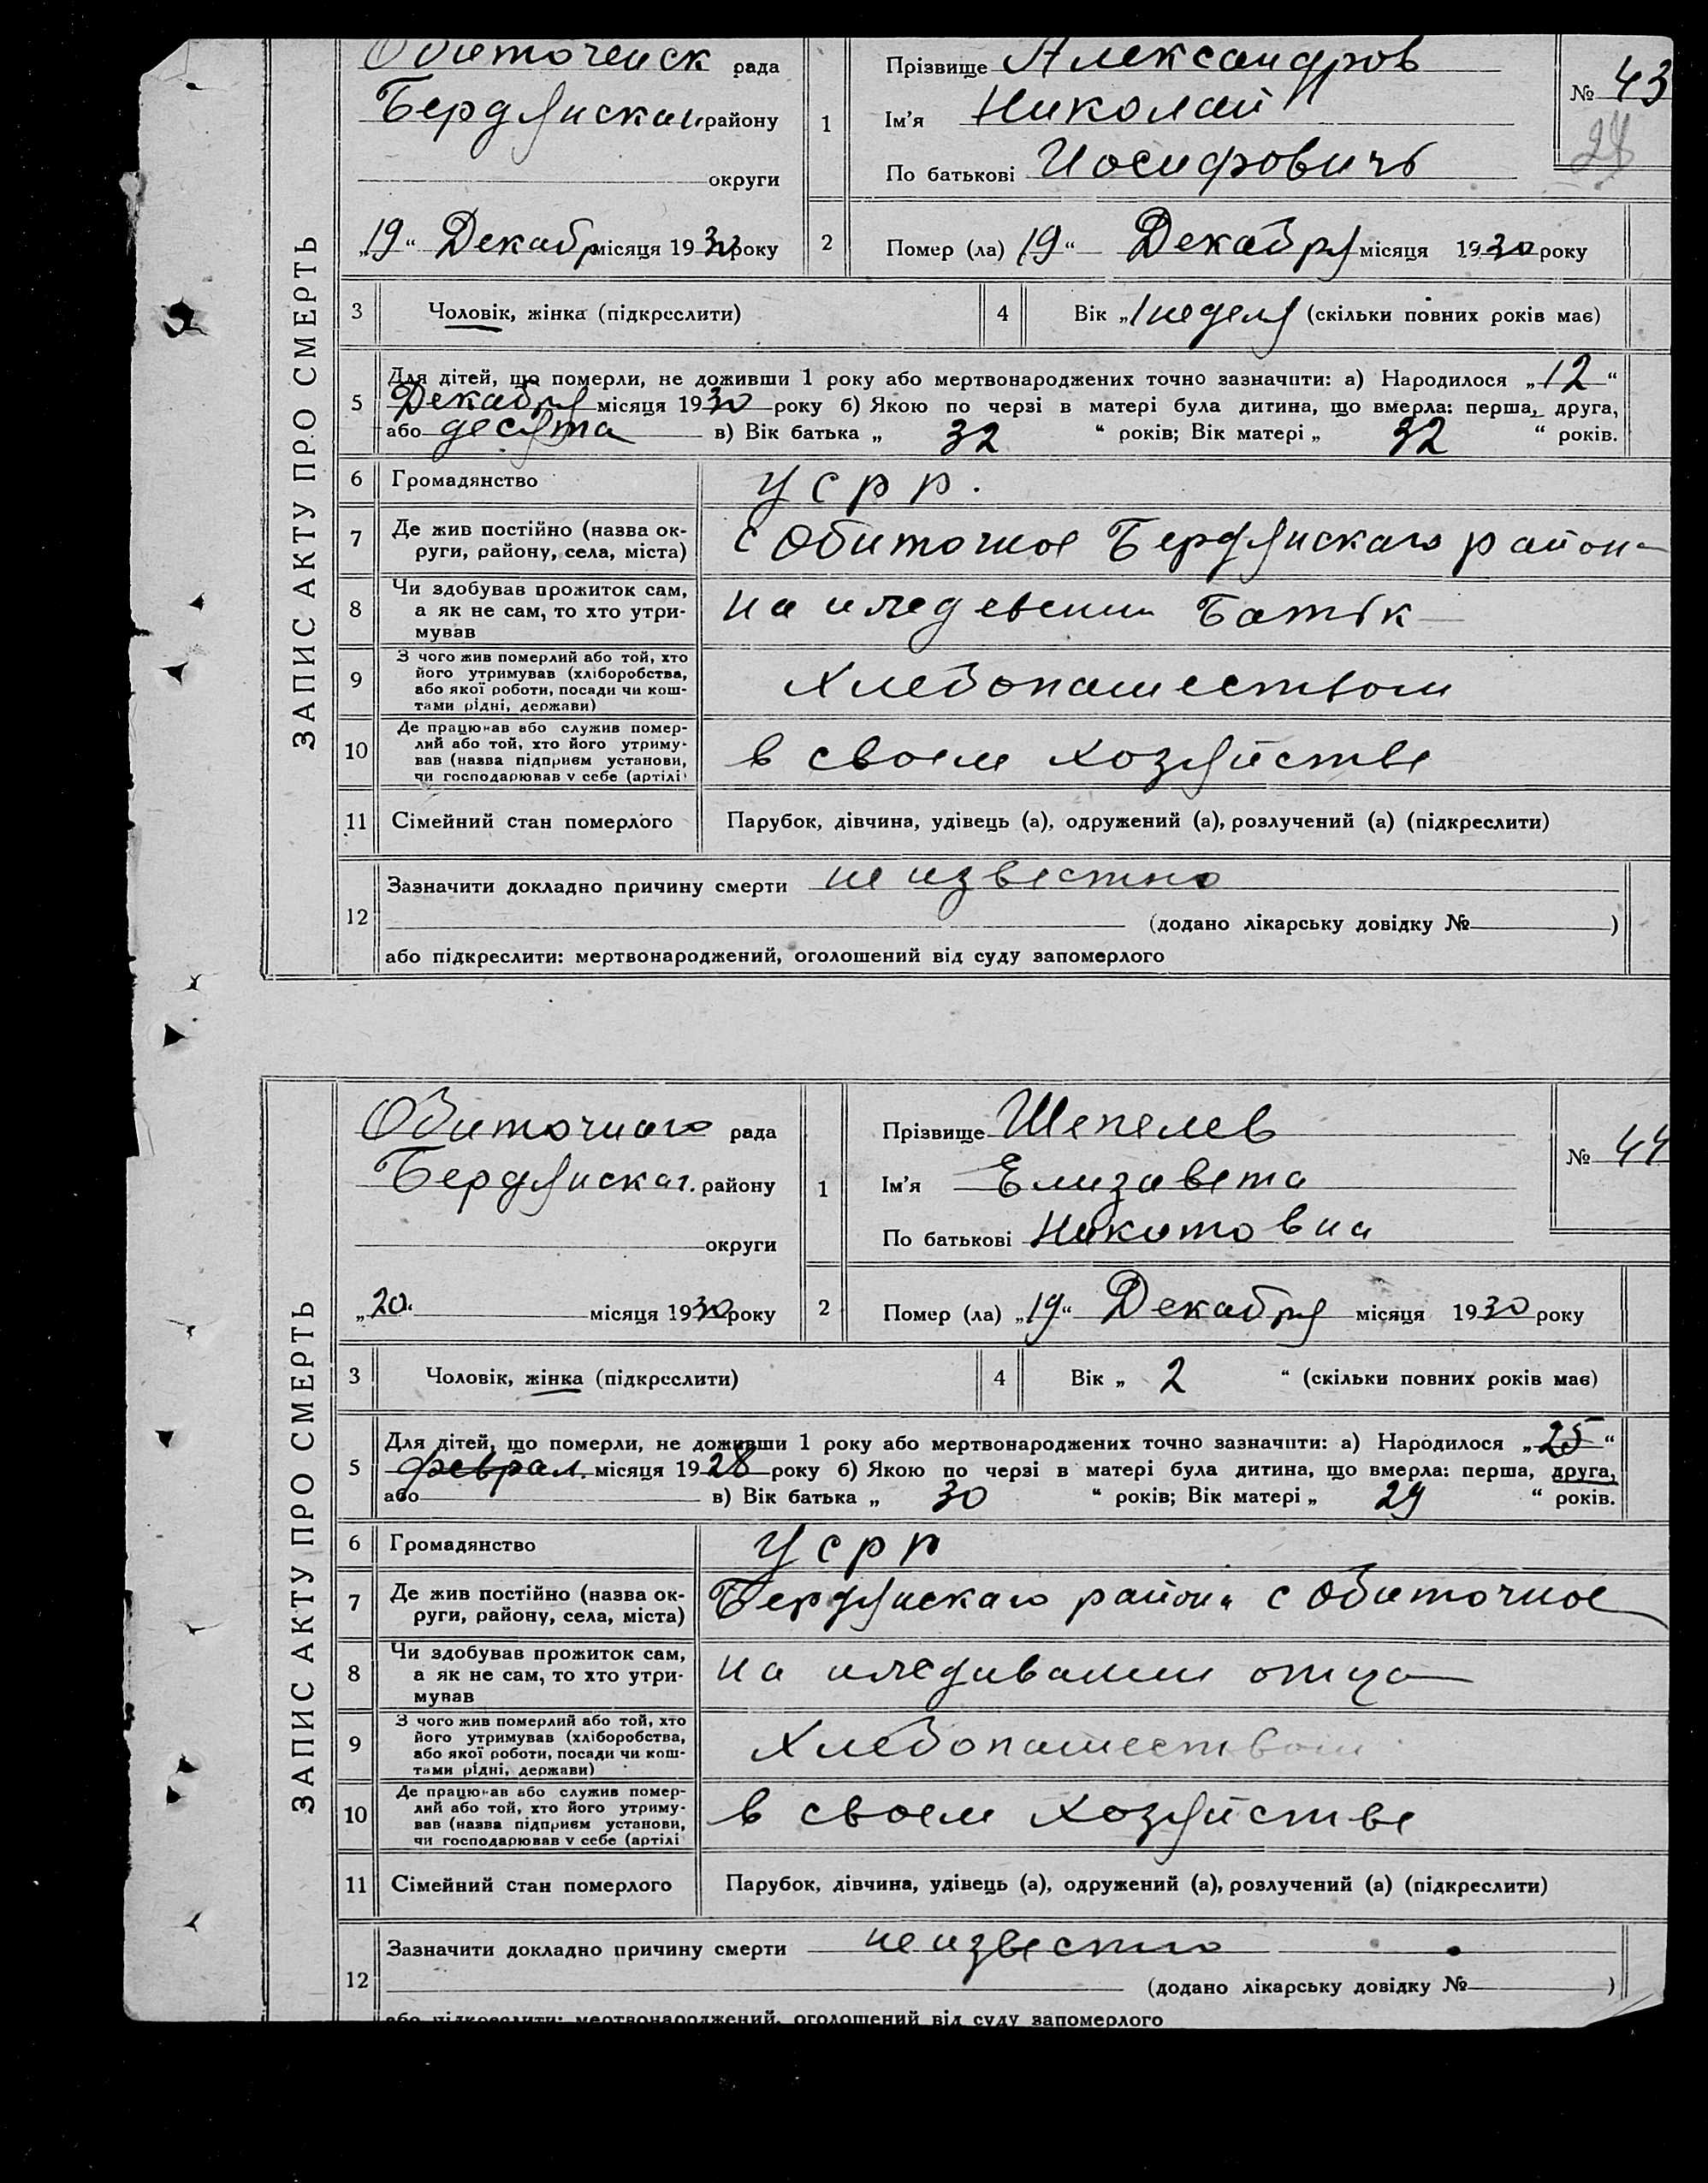 ЗАПИС АКТУ ПРО СМЕРТЬ
Обиточенск рада
Бердянскаг району
округи
„19“ Декабр місяця 1930 року
1
Прізвище Александров
Ім'я Николай
По батькові Иосифовичь
№ 43
28
2
Помер (ла) 19“ Декабря місяця 1930 року
3 Чоловік, жінка (підкреслити)
4 Вік „1 неделя (скільки повних років має)
5 Для дітей, що померли, не доживши 1 року або мертвонароджених точно зазначити: а) Народилося „12“
Декабря місяця 1930 року б) Якою по черзі в матері була дитина, що вмерла: перша, друга,
або десята в) Вік батька „ 32 “ років; Вік матері „ 32 “ років.
6 Громадянство УСРР.
7 Де жив постійно (назва ок-
руги, району, села, міста) с Обиточное Бердянскаго района
8 Чи здобував прожиток сам,
а як не сам, то хто утри-
мував
на иждевении Батьк
9 З чого жив померлий або той, хто
його утримував (хліборобства,
або якої роботи, посади чи кош-
тами рідні, держави)
Хлебопашеством
10 Де працював або служив помер-
лий або той, хто його утриму-
вав (назва підприєм установи,
чи господарював у себе (артілі)
в своем хозяйстве
11 Сімейний стан померлого Парубок, дівчина, удівець (а), одружений (а), розлучений (а) (підкреслити)
12 Зазначити докладно причину смерти не известно
(додано лікарську довідку № )
або підкреслити: мертвонароджений, оголошений від суду запомерлого
ЗАПИС АКТУ ПРО СМЕРТЬ
Обиточнаго рада
Бердянскаг. району
округи
„20“ місяця 1930 року
1
Прізвище Шепелев
Ім'я Елизавета
По батькові Никитовна
№ 44
2
Помер (ла) „19“ Декабря місяця 1930 року
3 Чоловік, жінка (підкреслити)
4 Вік „ 2 “ (скільки повних років має)
5 Для дітей, що померли, не доживши 1 року або мертвонароджених точно зазначити: а) Народилося „25“
феврал. місяця 1928 року б) Якою по черзі в матері була дитина, що вмерла: перша, друга,
або в) Вік батька „ 30 “ років; Вік матері „ 29 “ років.
6 Громадянство УСРР
7 Де жив постійно (назва ок-
руги, району, села, міста) Бердянскаго района с Обиточное
8 Чи здобував прожиток сам,
а як не сам, то хто утри-
мував
на иждивании отца
9 З чого жив померлий або той, хто
його утримував (хліборобства,
або якої роботи, посади чи кош-
тами рідні, держави)
Хлебопашеством
10 Де працював або служив помер-
лий або той, хто його утриму-
вав (назва підприєм установи,
чи господарював у себе (артілі
в своем хозяйстве
11 Сімейний стан померлого Парубок, дівчина, удівець (а), одружений (а), розлучений (а) (підкреслити)
12 Зазначити докладно причину смерти не известно
(додано лікарську довідку № )
або підкреслити: мертвонароджений, оголошений від суду запомерлого